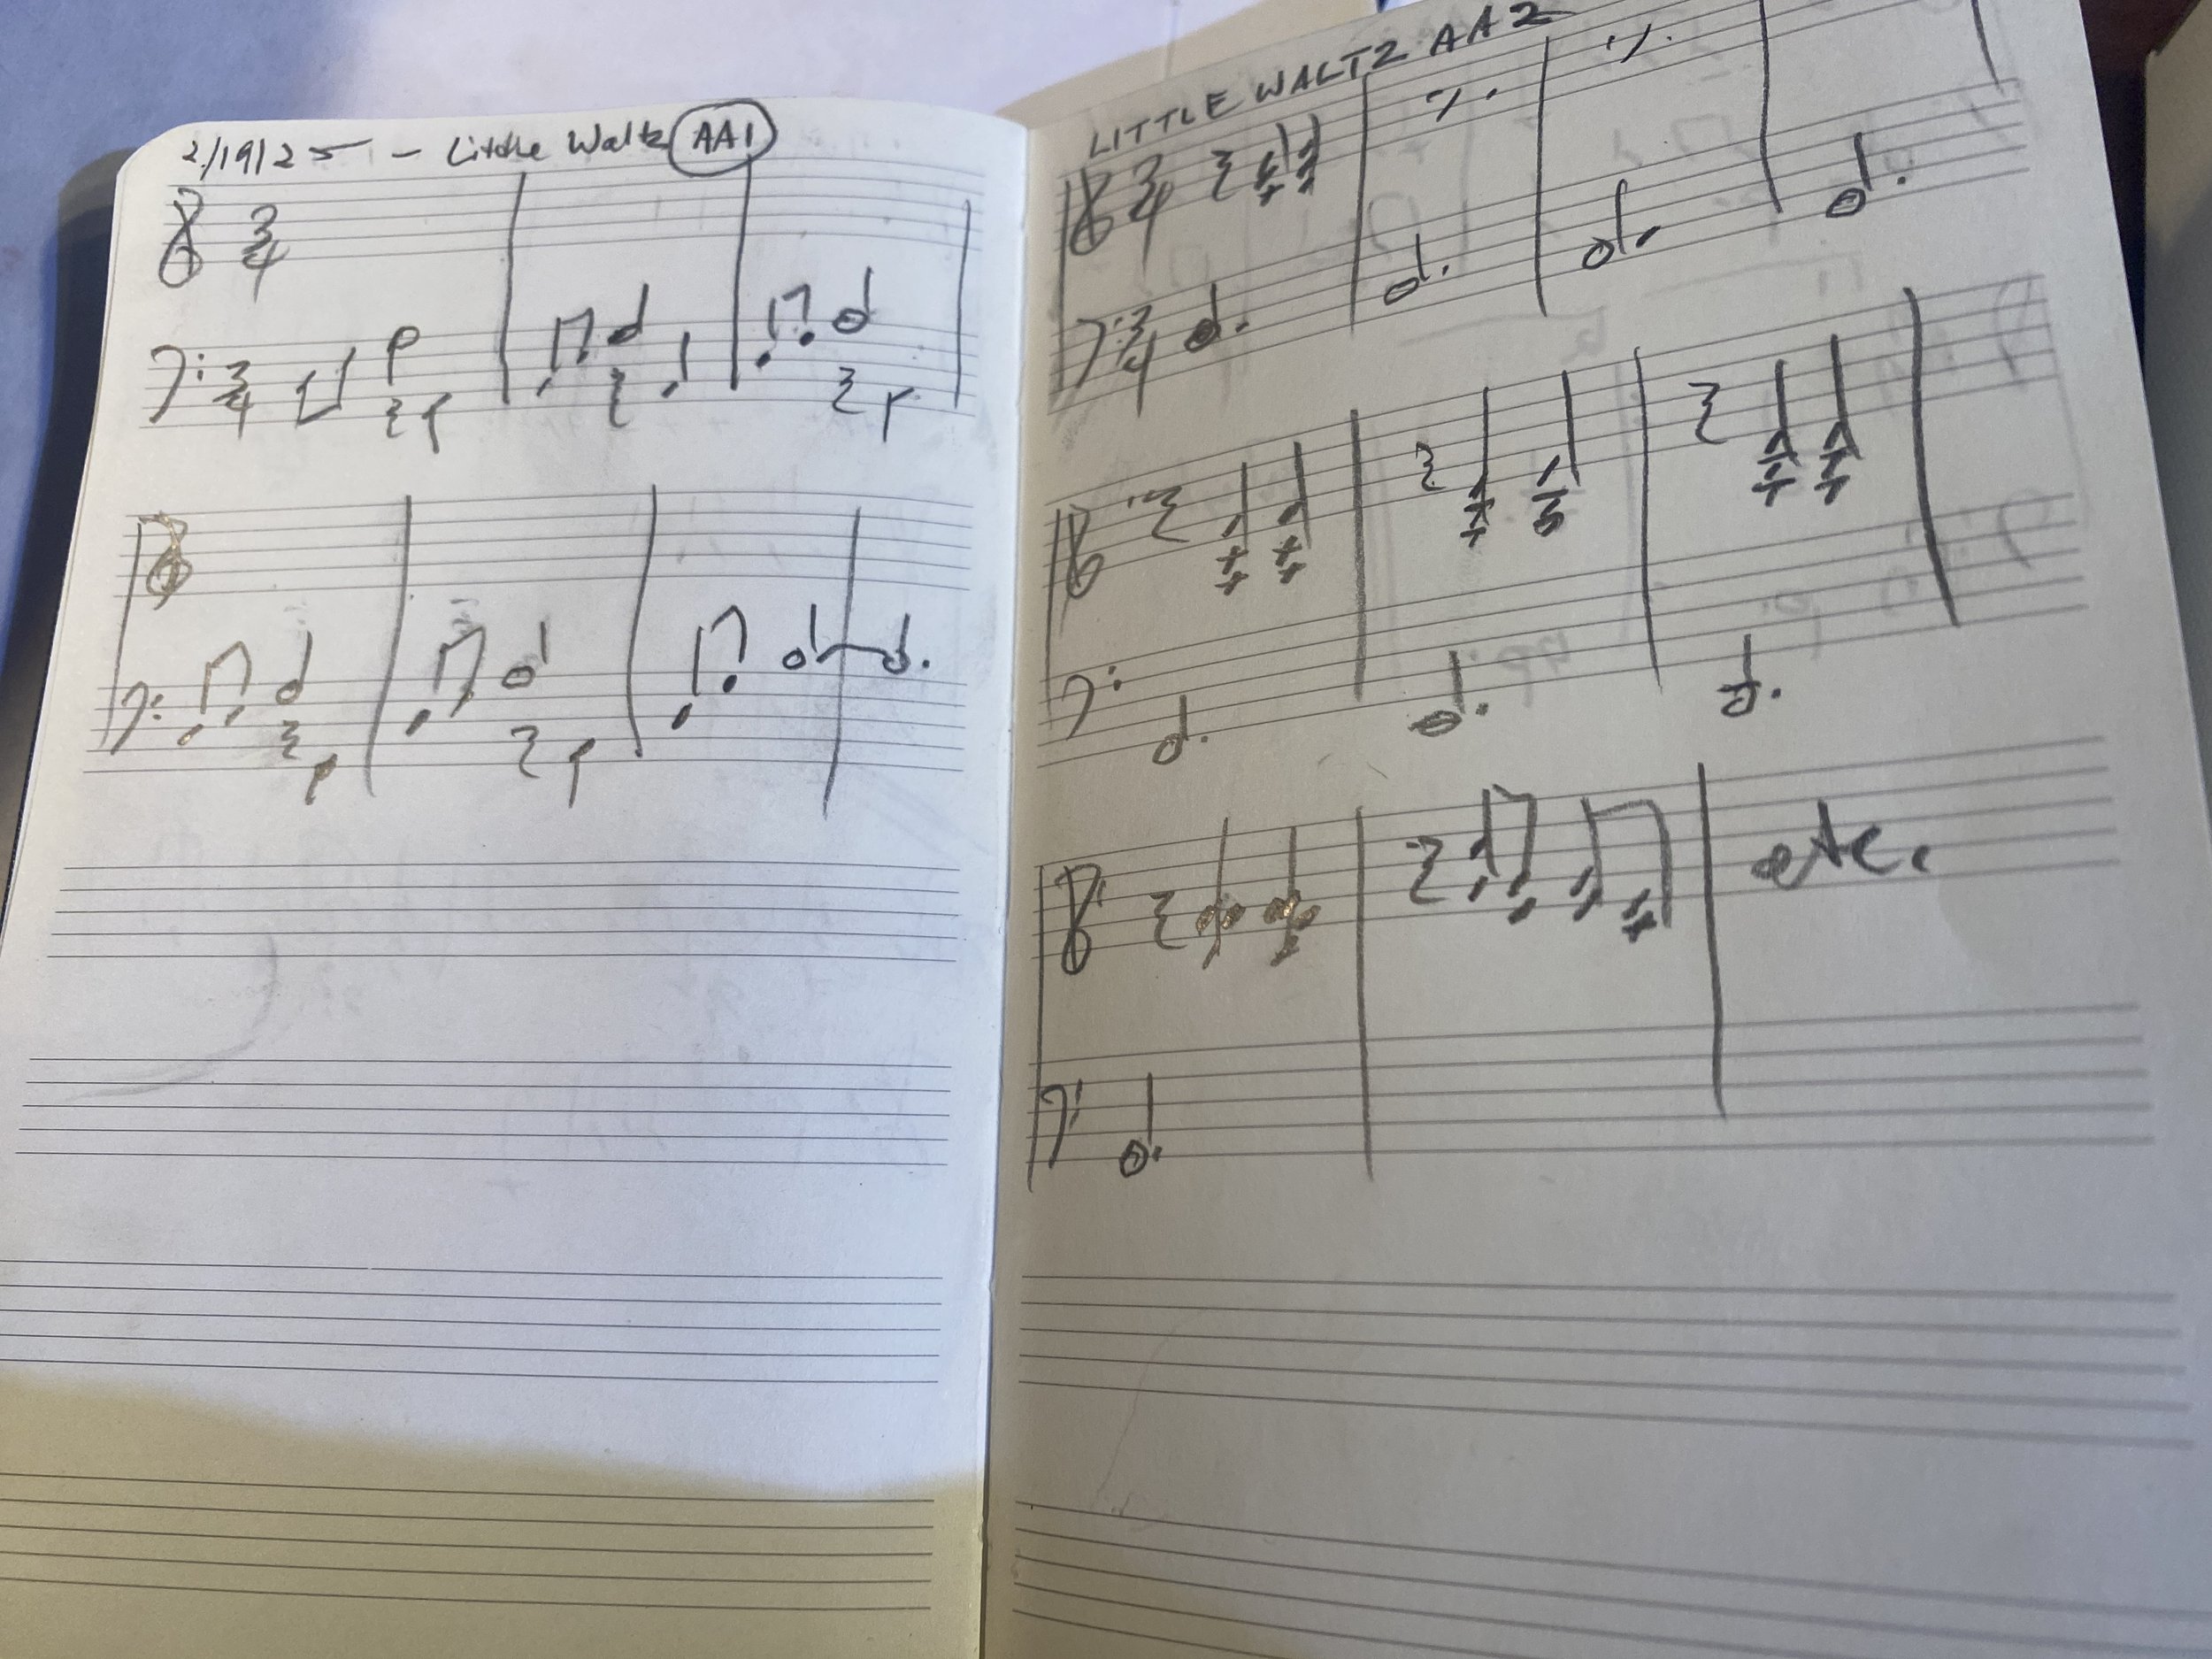 2/19/25 - Little Waltz AA1
3/4
3/4
LITTLE WALTZ AA2
3/4
3/4
etc.